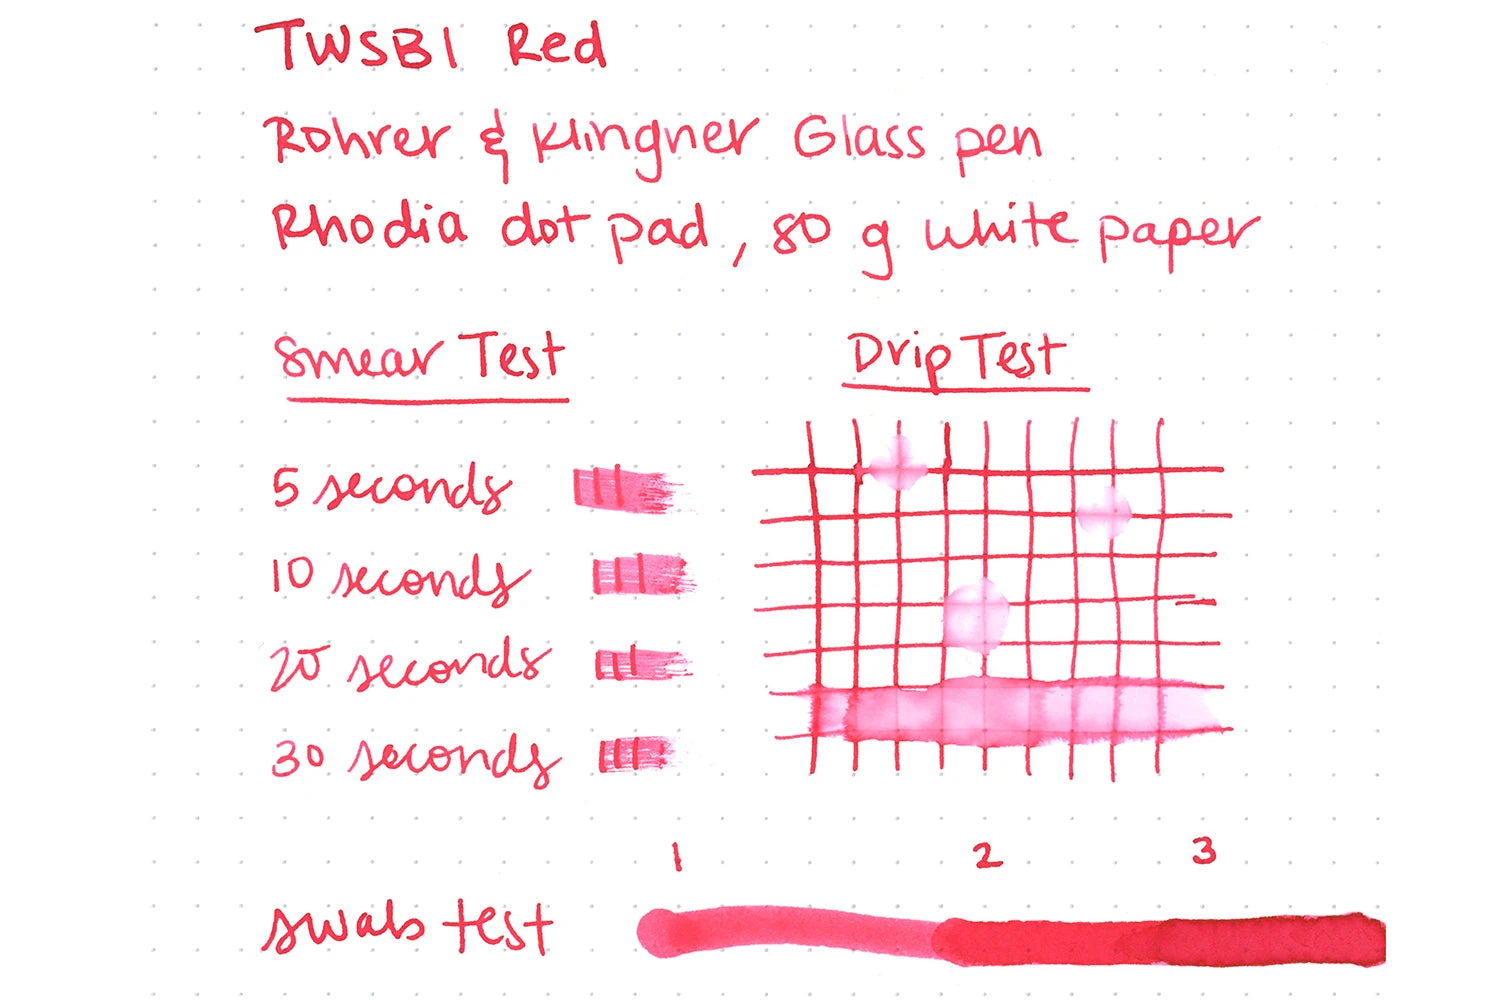 TWSBI Red
Rohrer & Klingner Glass pen
Rhodia dot pad, 80 g white paper
Smear Test
5 seconds
10 seconds
20 seconds
30 seconds
Drip Test
1 2 3
swab test